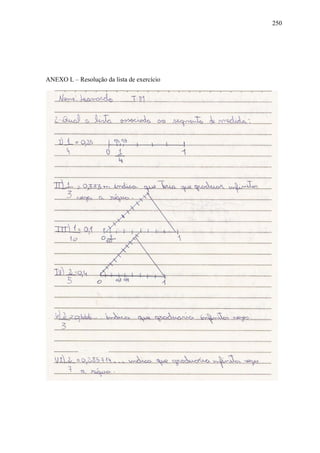 250
ANEXO L – Resolução da lista de exercício
Nome: Leonardo T:M
2-Qual a lista associada ao segmento de medida:
I) 1/4 = 0,25 0 1/4 1
II) 1/3 = 0,333 m indica que teria que graduar infinitas
vezes a régua.
III) 1/10 = 0,1 0 1
IV) 2/5 = 0,4 0 1
V) 2/3 = 0,666... indica que graduaria infinitas vezes
VI) 2/7 = 0,285714... indica que graduaria infinitas vezes
a régua.